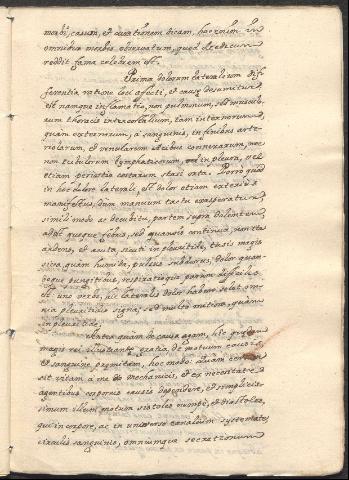 morbi, casum, et curationem dicam, hac enim in
omnibus morbis observatum, quod Medicum
reddit fama celebrem est.
Prima dolorum lateralium dif
ferentia ratione loci affecti, et causæ desumitur
est namque inflamatio, non pulmonum, sed muscul
rum thoracis intercostalium, tam internorum
quam externorum, a sanguinis, in finibus arte
riolarum, et venularum ipsibus connexarum, nec
non tubulorum lymphaticorum, vel in pleura, vel
etiam periostio costarum stasi orta. Porro quod
in hoc dolore laterali, est dolor etiam externe
manifestus, dum manuum tactu exasperatur
simili modo ac decubitu, partem supra dolentem
adest quoque febris, sed quamvis continua, non ita
ardens, et acuta, sicuti in pleuritide, tusis magis
sicca, quam humida, pulsus subdurus, dolor quan
doque pungitivus, respiratioque parum difficilis
et uno verbo, hic lateralis dolor habere solet om
nia pleuritidis signa, sed multo mitiora, quam
in pleuritide.
Antea quam de causa agam, hic
magis rei illustrandæ gratia, de motuum causis,
et sanguine præmitam, hoc modo: quum
sit vitam a me de mechanicis, et ex necessitate
agentibus corporis causis dependere, et simplicis
simum illum motum sistoles nempe, et diastoles,
qui in corpore, ac in universo canalium systemate
circulis sanguinis, omniumque secretionum